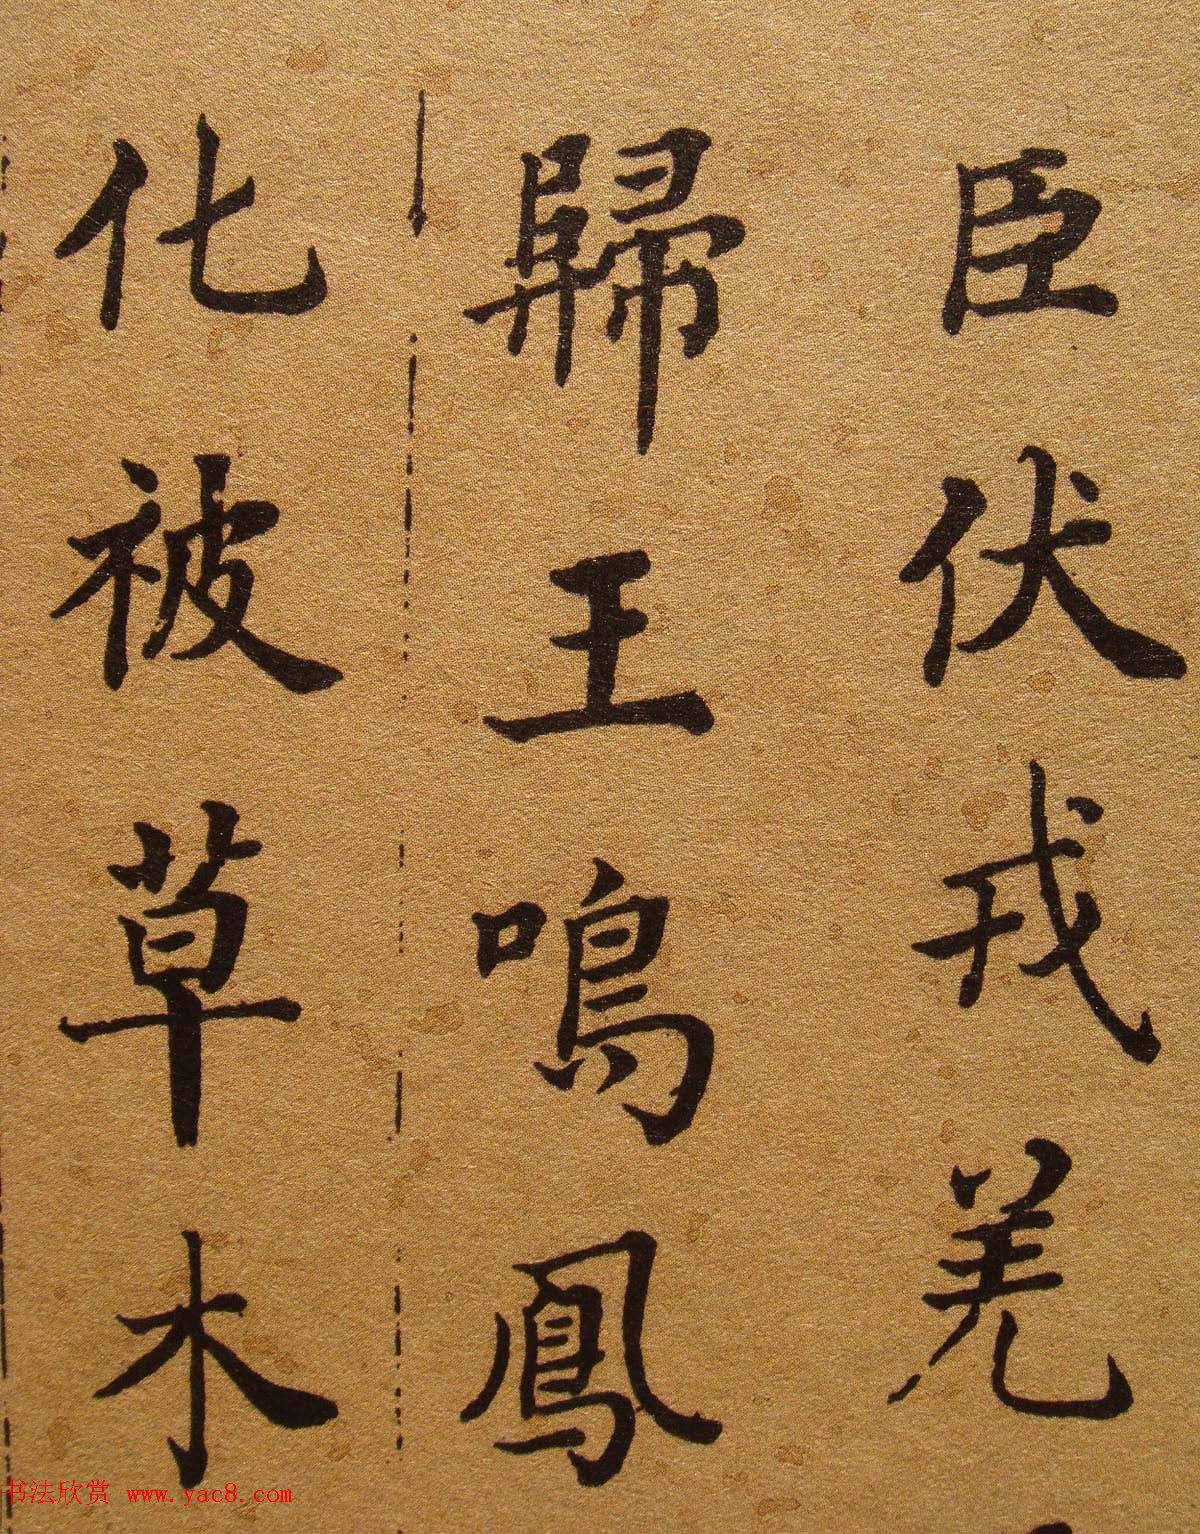 臣伏戎羌
歸王鳴鳳
化被草木
书法欣赏 www.yac8.com